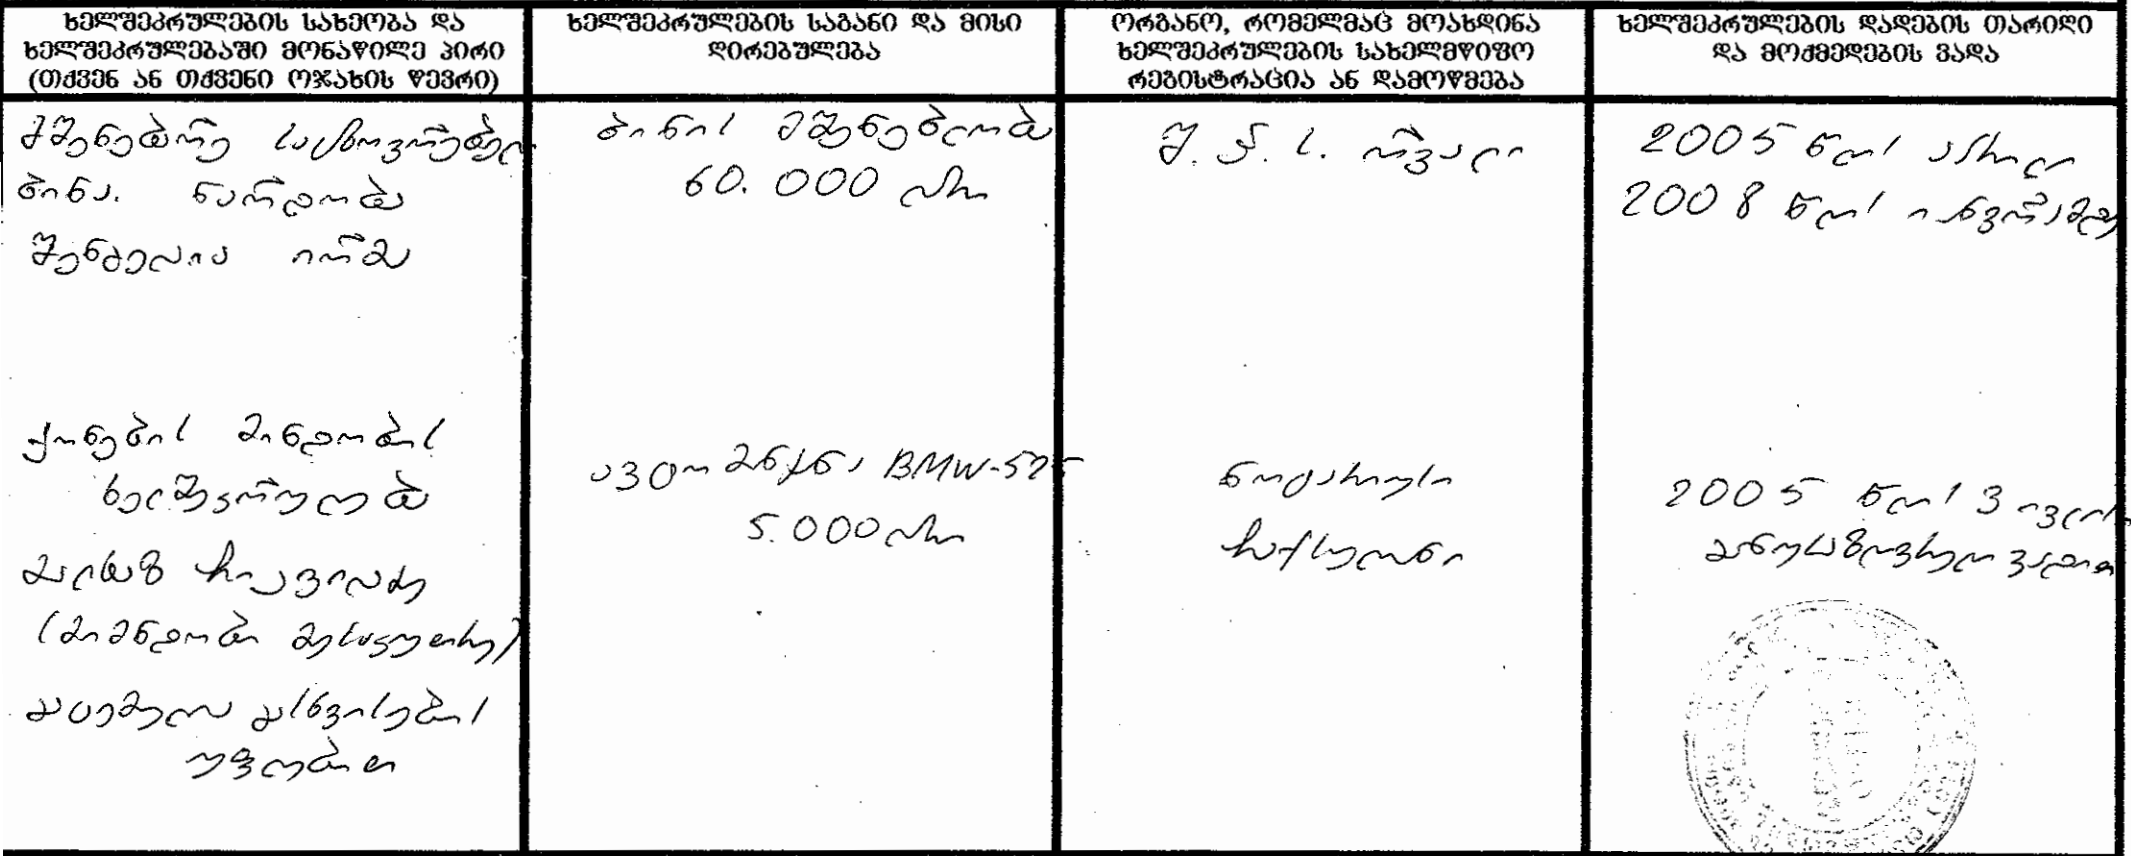 ხელშეკრულების სახეობა და
ხელშეკრულებაში მონაწილე პირი
(თქვენ ან თქვენი ოჯახის წევრი)
ხელშეკრულების საგანი და მისი
ღირებულება
ორგანო, რომელმაც მოახდინა
ხელშეკრულების სახელმწიფო
რეგისტრაცია ან დამოწმება
ხელშეკრულების დადების თარიღი
და მოქმედების ვადა
მშენებარე
ბინა. ნარდობა
შენგელია ირმა
ბინის მშენებლობა
60.000 ლარი
შ.პ.ს.
2005 წლის
2008 წლის
ქონების მინდობის
ხელშეკრულება
(მიმნდობი მესაკუთრე)
გაცემულია გასხვისების
უფლებით
ავტომანქანა BMW-525
5.000 ლარი
ნოტარიუსი
2005 წლის 3 ივლისი
განუსაზღვრელი ვადით